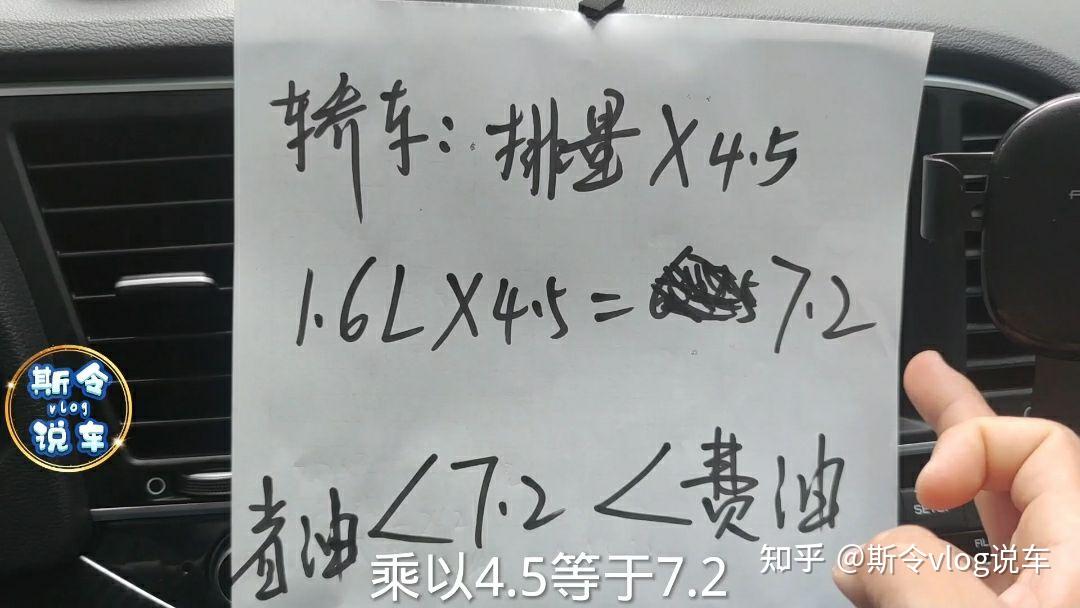 轿车：排量X4.5
1.6LX4.5=7.2
省油<7.2<费油
斯令
vlog
说车
乘以4.5等于7.2
知乎 @斯令vlog说车